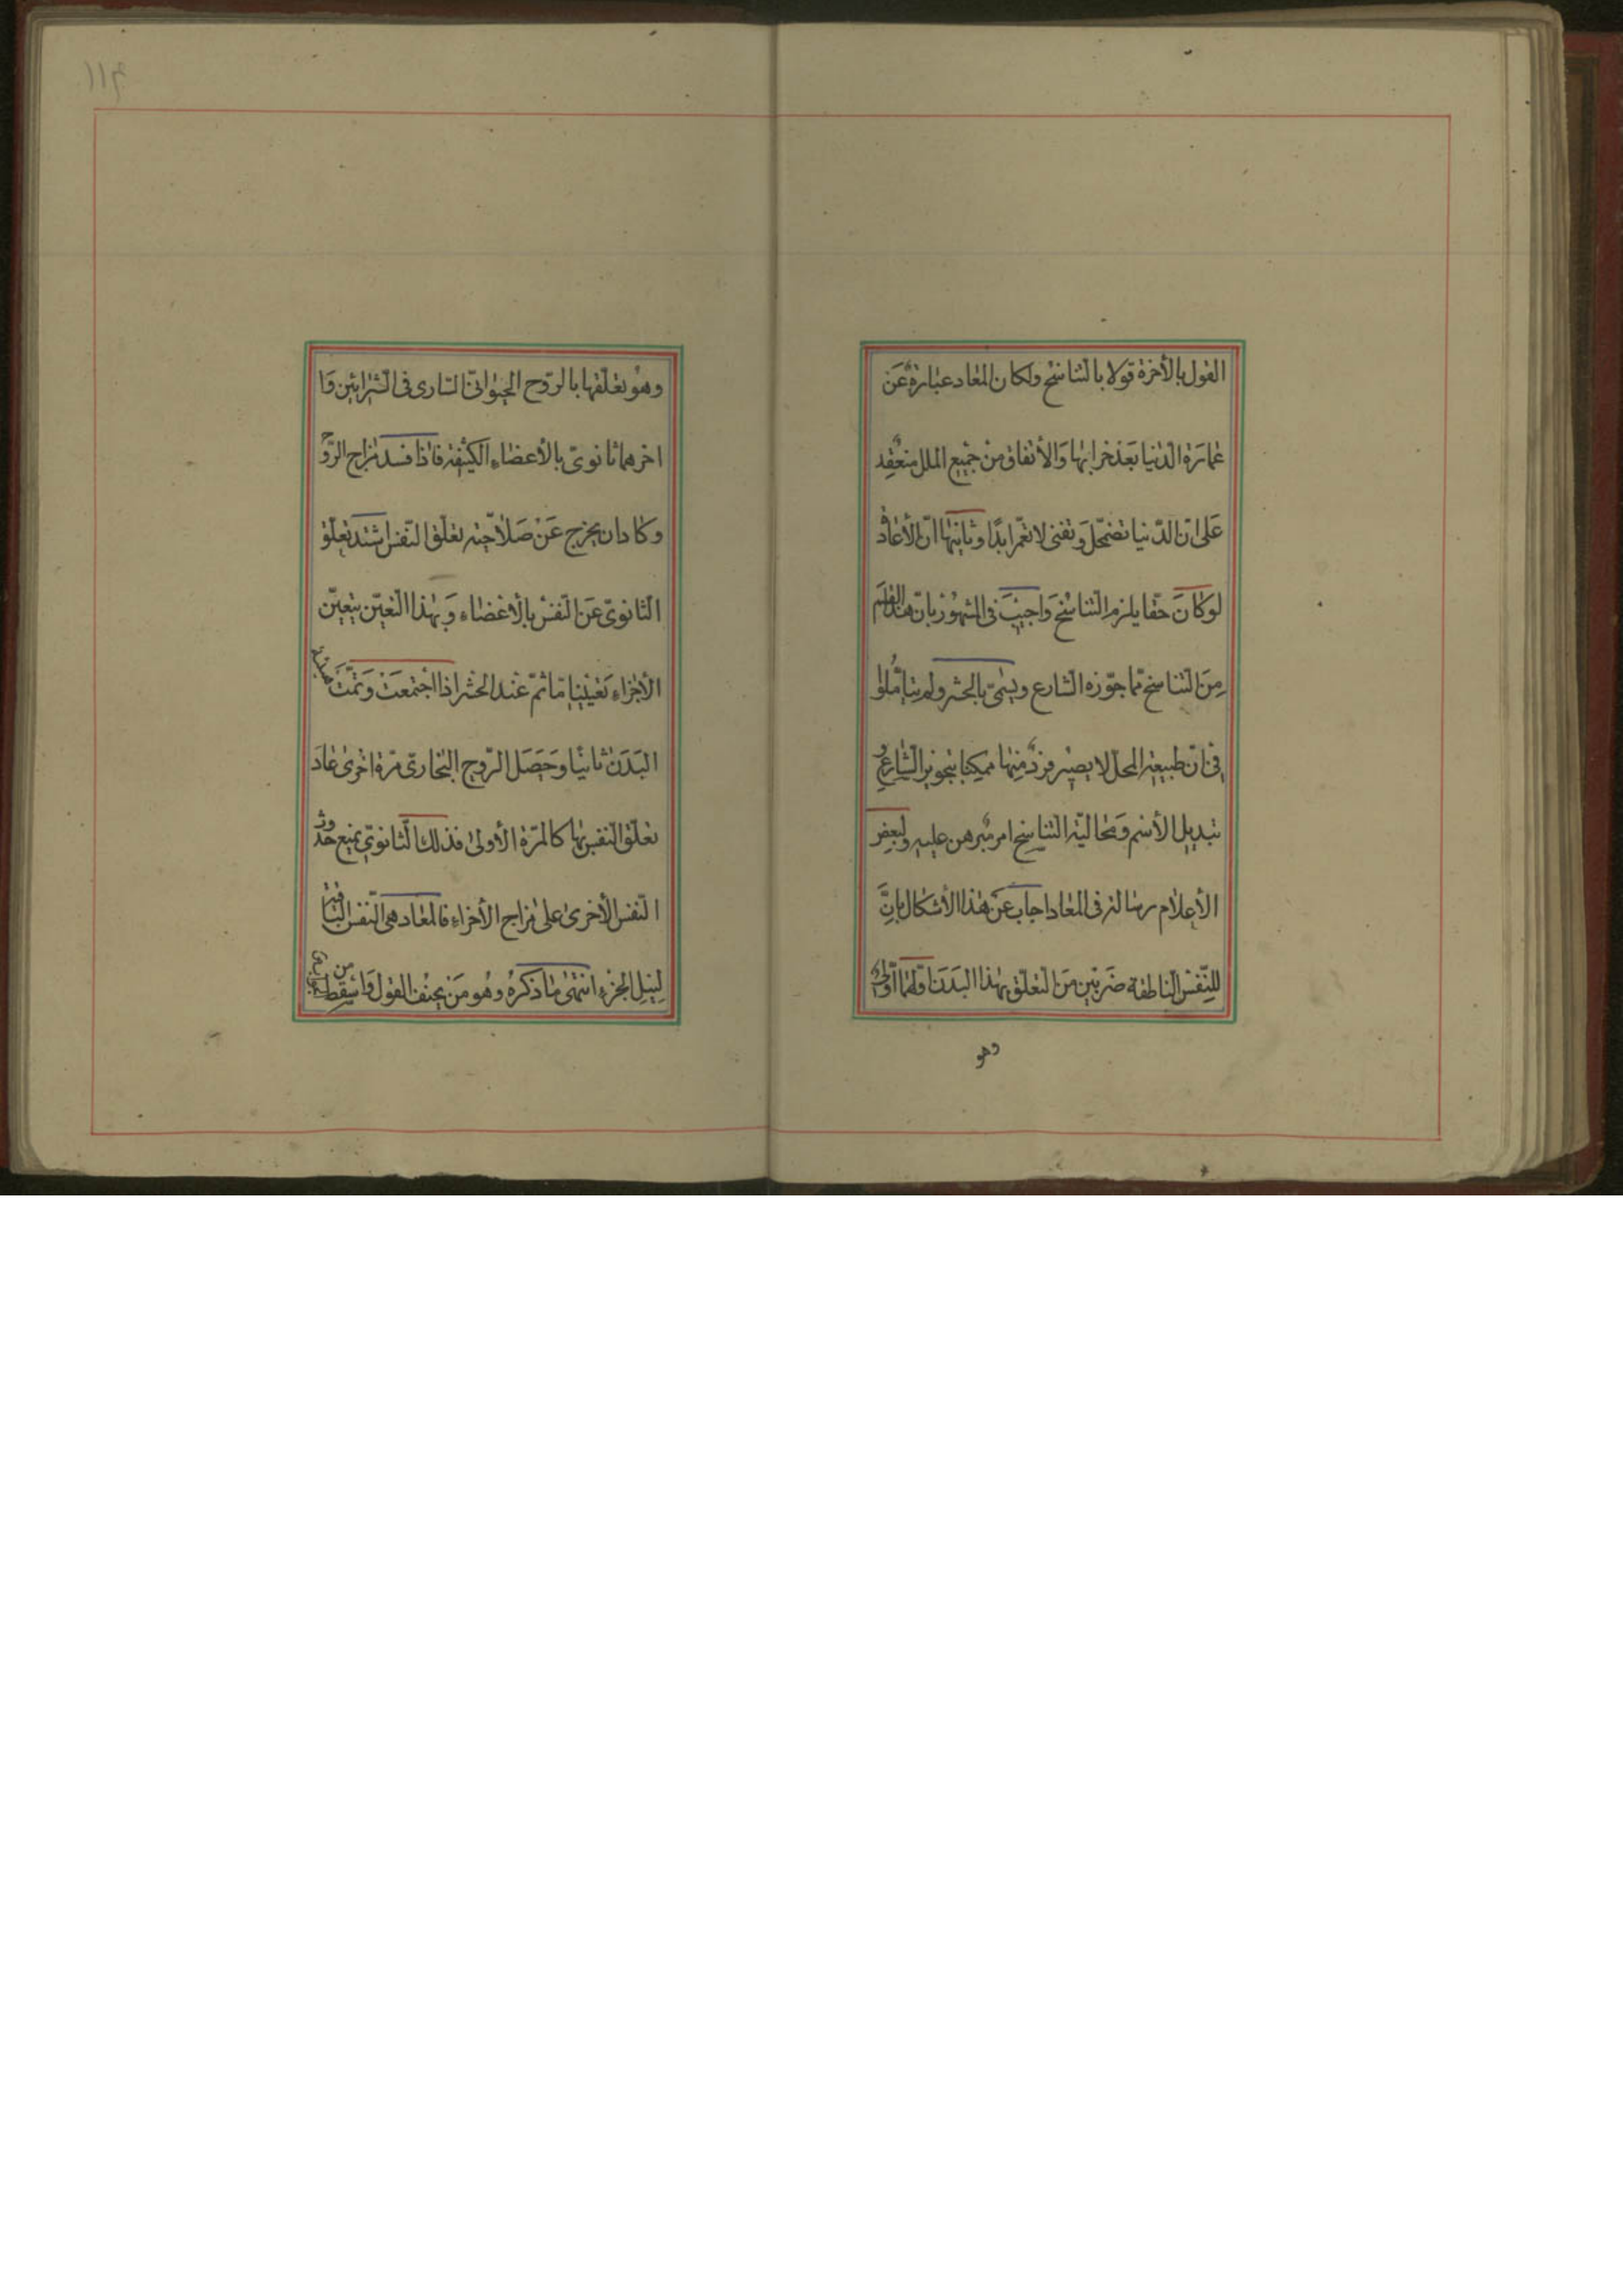 القول بالأخرة قولا بالتناسخ ولكان المعاد عبارة عن
عمارة الدنيا بعد خرابها والأتفاق من جميع الملل منعقد
على ان الدنيا تضمحل وتفنى لا تعمر ابدا وثانيها ان الأعادة
لو كان حقا يلزم التناسخ واجيب فى المشهور بان هذا القسم
من التناسخ مما جوزه الشارع ويسمى بالحشر ولم يتأملوا
فى ان طبيعة المحال لا يصير فرد منها ممكنا بتجويز الشارع و
تبديل الأسم ومحالية التناسخ امر مبرهن عليه ولبعض
الأعلام رسالة فى المعاد اجاب عن هذا الأشكال بان
للنفس الناطقة ضربين من التعلق بهذا البدن اولهما أولى
وهو
وهو تعلقها بالروح الحيوانى السارى فى الشرائين وا
اخرهما ثانوى بالأعضاء الكثيفة فاذا فسد مزاج الروح
وكاد ان يخرج عن صلاحية تعلق النفس اشتد تعلق
الثانوى عن النفس بالأعضاء وبهذا التعين يتعين
الأجزاء تعينا ما ثم عند الحشر اذا اجتمعت وتمت صورة
البدن ثانيا وحصل الروح البخارى مرة اخرى عاد
تعلق النفس بها كالمرة الأولى فذلك الثانوى يمنع حدوث
النفس الأخرى على مزاج الأجزاء فالمعاد هى النفس الباقية
لنيل الجزء انتهى ما ذكره وهو من سخيف القول واسقط من